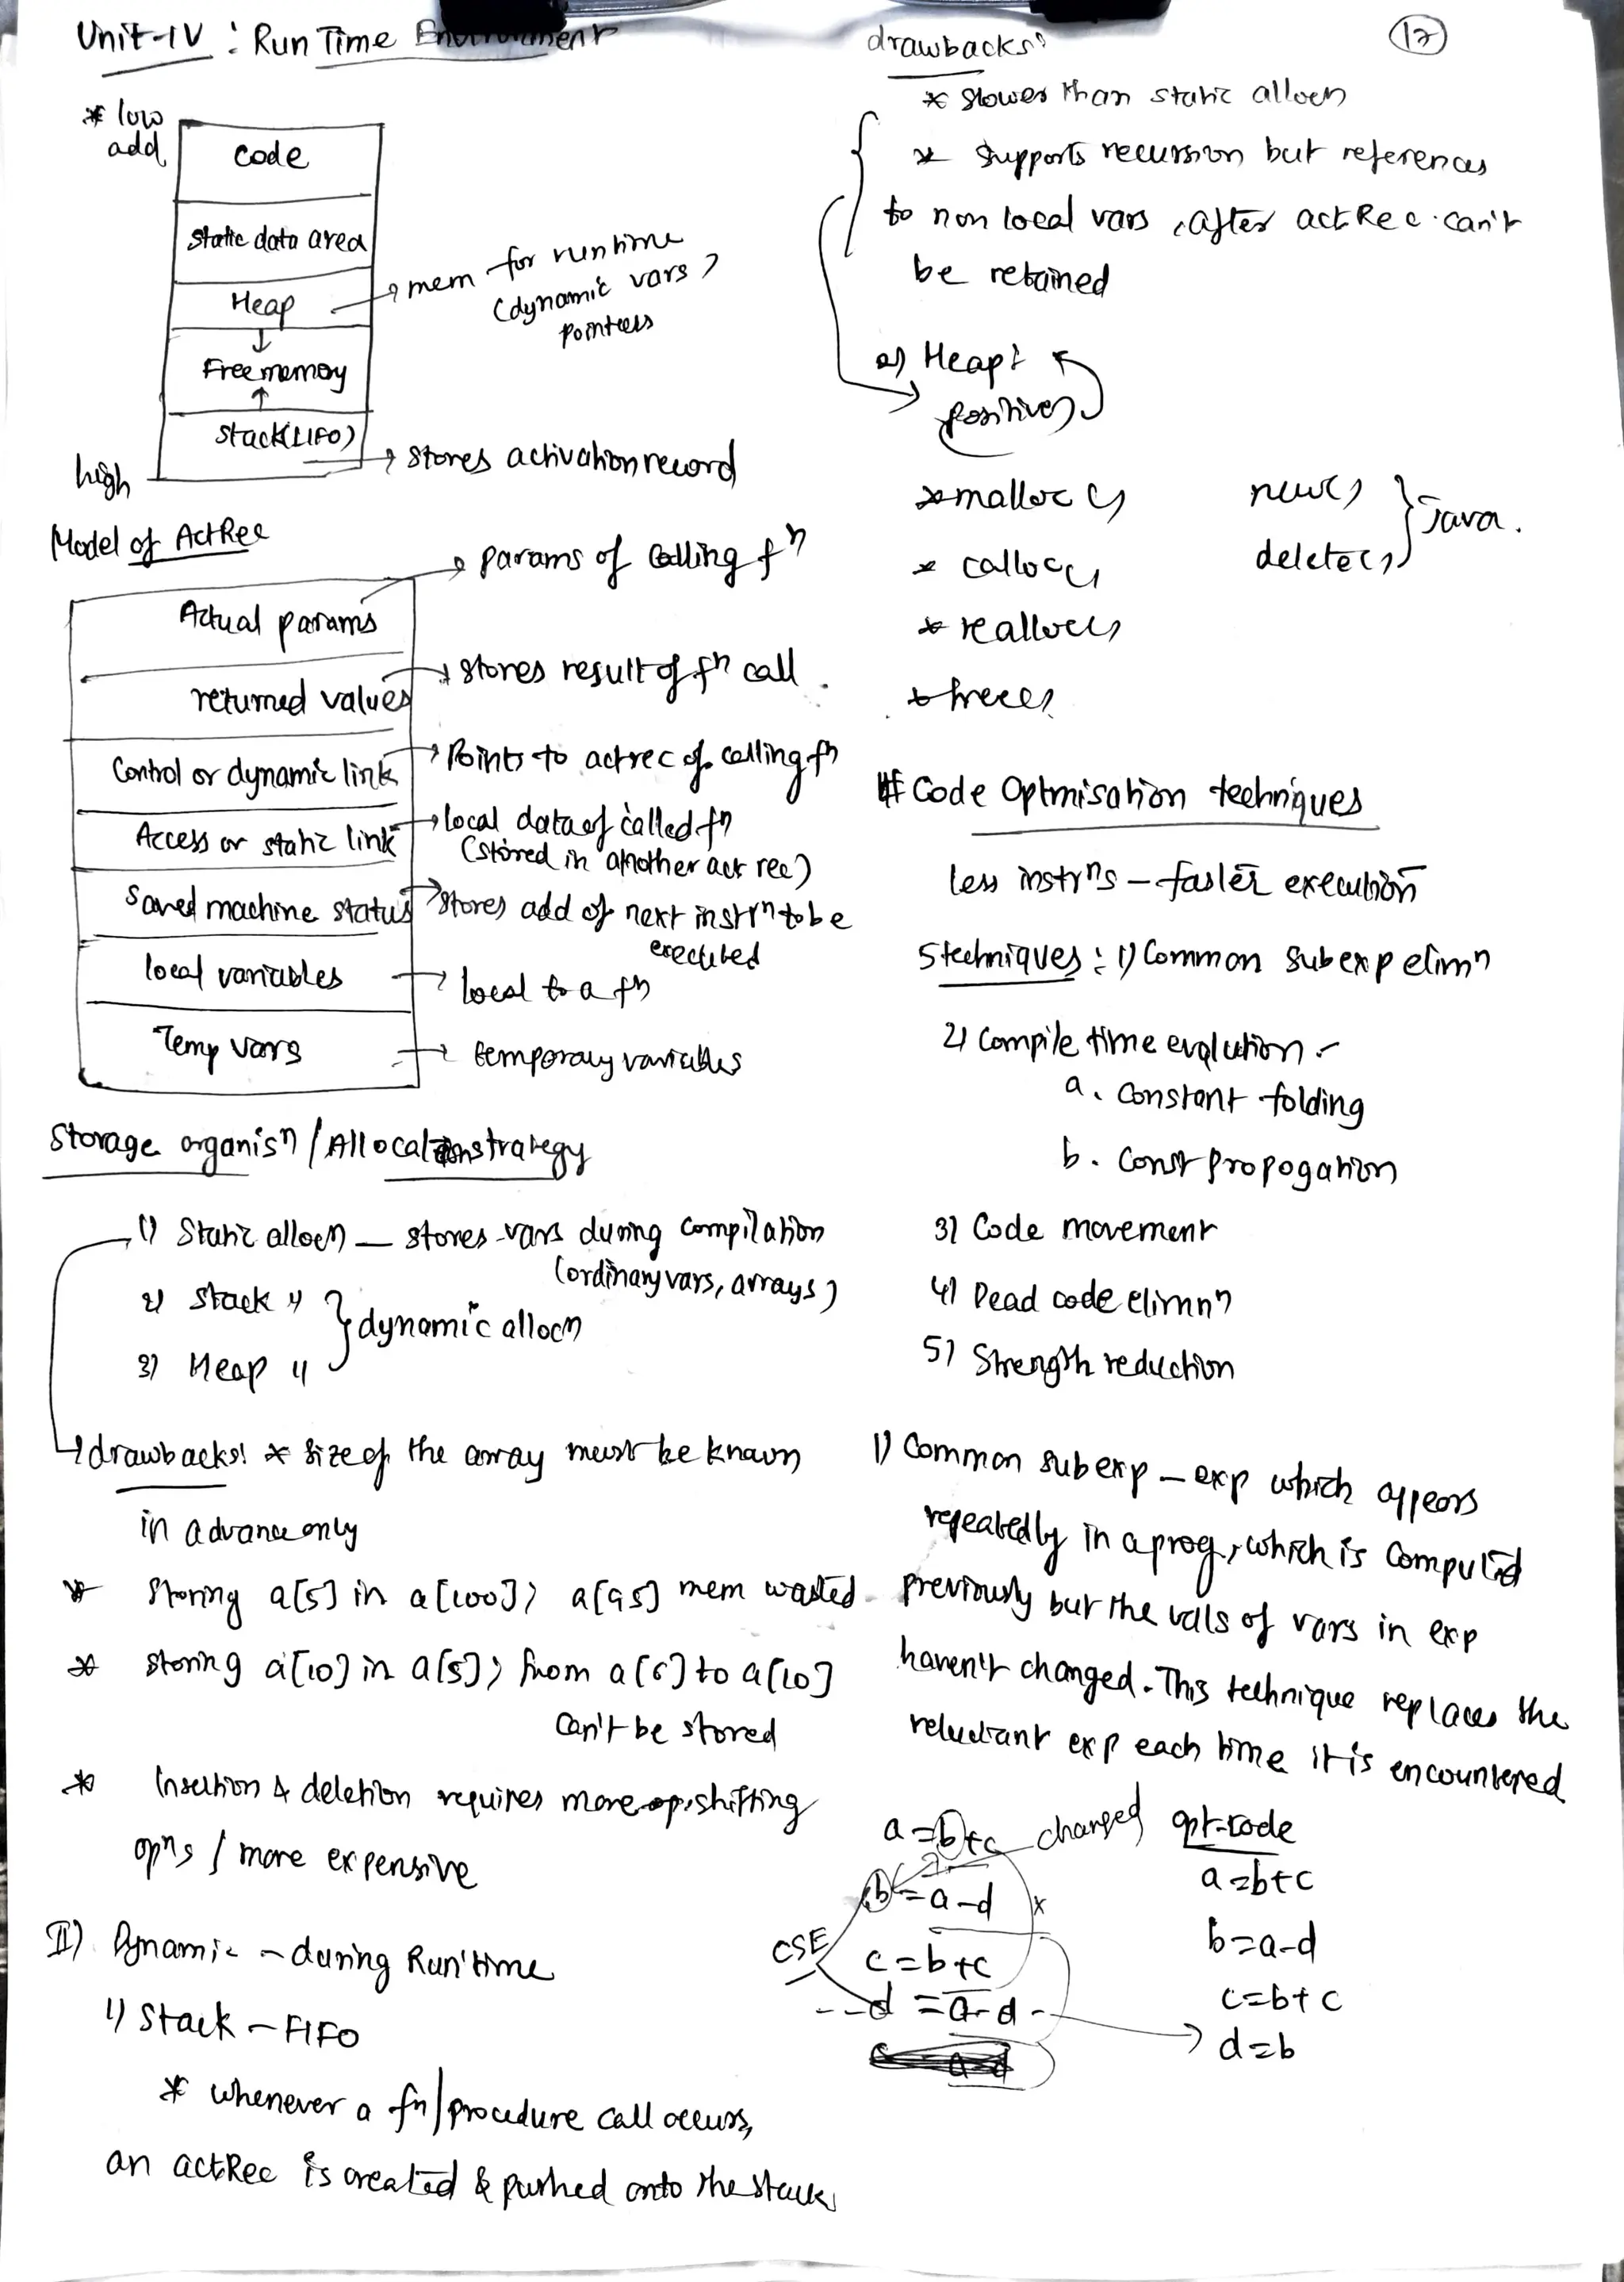 Unit-IV : Run Time Environment
* low add
code
Static data area
Heap
mem for runtime
(dynamic vars)
pointers
Free memory
Stack(LIFO)
stores activation record
high
Model of ActRec
Actual params
params of calling fⁿ
returned values
stores result of fⁿ call
Control or dynamic link
Points to actrec of calling fⁿ
Access or static link
local data of called fⁿ
(stored in another act rec)
Saved machine status
stores add of next instrⁿ to be
executed
local variables
local to a fⁿ
Temp vars
temporary variables
Storage organisⁿ / Allocation strategy
1) Static allocⁿ — stores vars during compilation
(ordinary vars, arrays)
2) Stack "
3) Heap "
} dynamic allocⁿ
drawbacks: * size of the array must be known
in advance only
* Storing a[5] in a[100]; a[95] mem wasted
* storing a[10] in a[5]; from a[6] to a[10]
can't be stored
* Insertion & deletion requires more shifting
opⁿs / more expensive
II) Dynamic - during Run time
1) Stack - FIFO
* whenever a fn/procedure call occurs,
an actRec is created & pushed onto the stack
17
drawbacks:
* slower than static allocⁿ
* supports recursion but references
to non local vars, after actRec can't
be retained
2) Heap:
positives
* malloc()
* calloc()
* realloc()
* free()
new()
delete()
} Java.
# Code Optmisation techniques
less instrⁿs - faster execution
5 techniques : 1) Common subexp elimⁿ
2) Compile time evalution -
a. constant folding
b. Const propogation
3) Code movement
4) Dead code elimnⁿ
5) Strength reduction
1) Common sub exp - exp which appears
repeatedly in a prog, which is computed
previously but the vals of vars in exp
haven't changed. This technique replaces the
reluctant exp each time it is encountered
a=b+c
changed
b=a-d
x
CSE
c=b+c
d=a-d
a-d
opt-code
a=b+c
b=a-d
c=b+c
d=b